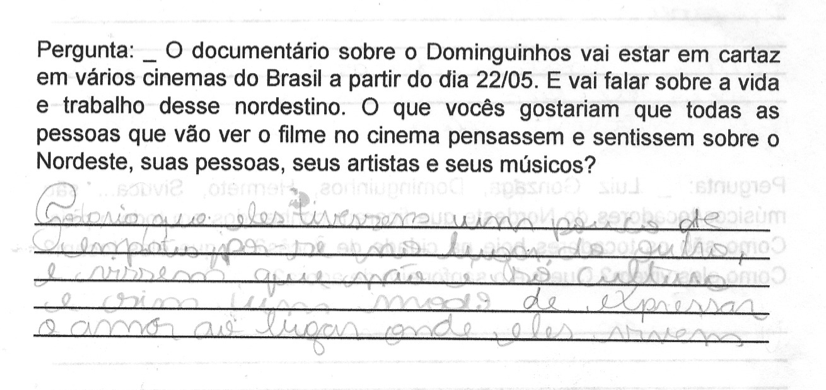 Pergunta: _ O documentário sobre o Dominguinhos vai estar em cartaz
em vários cinemas do Brasil a partir do dia 22/05. E vai falar sobre a vida
e trabalho desse nordestino. O que vocês gostariam que todas as
pessoas que vão ver o filme no cinema pensassem e sentissem sobre o
Nordeste, suas pessoas, seus artistas e seus músicos?
que eles tivessem um pouco de
no lugar do outro,
e vissem que não é só cultura
e sim um modo de expressar
o amor ao lugar onde eles vivem